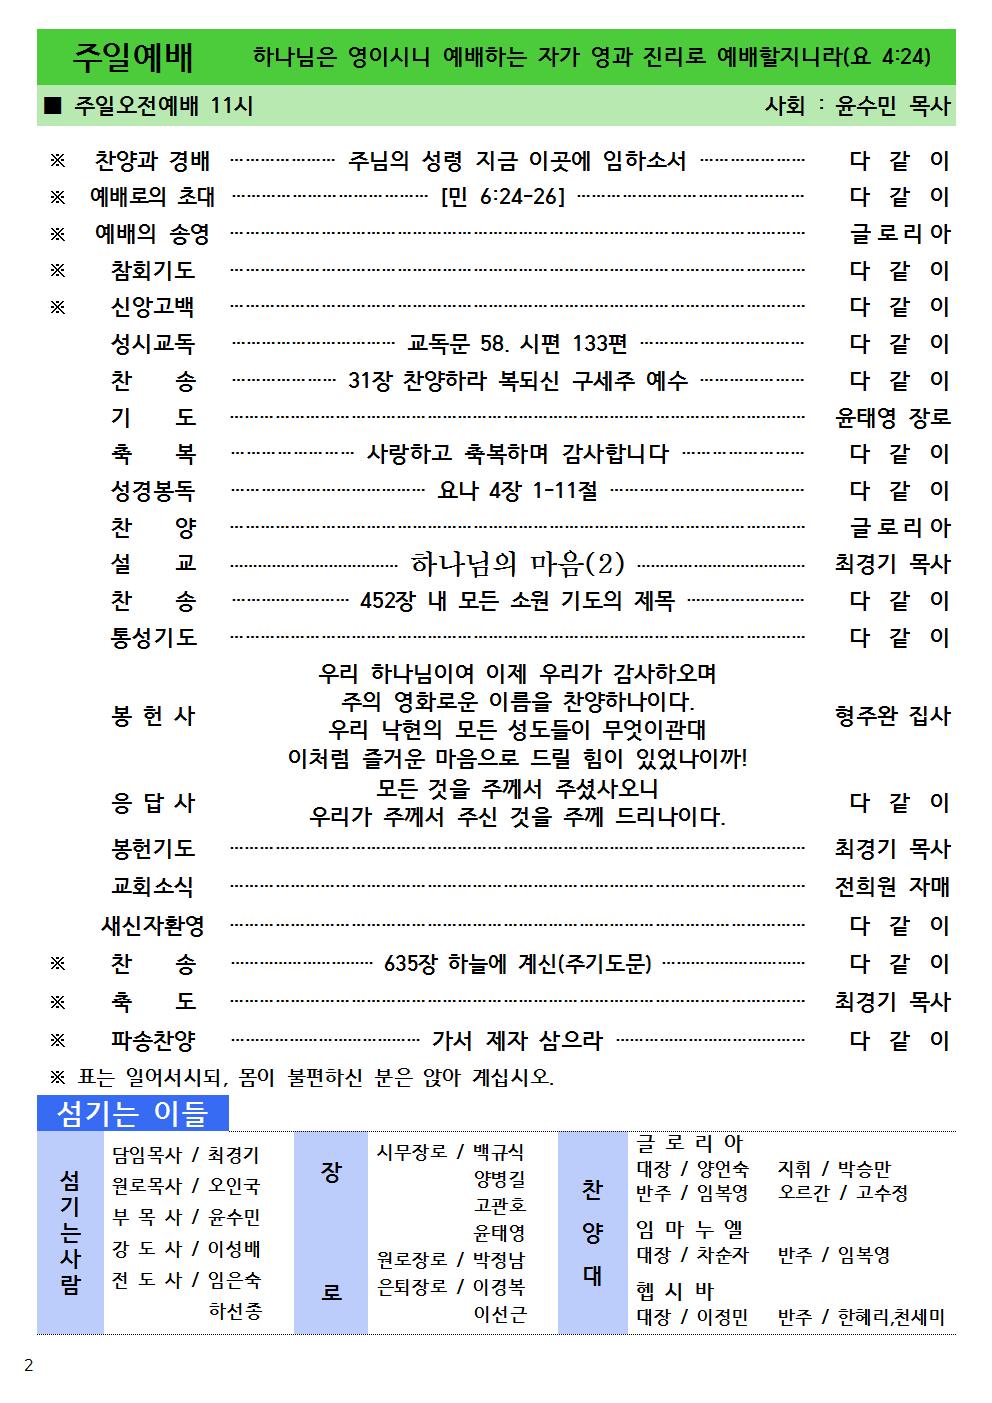 주일예배 하나님은 영이시니 예배하는 자가 영과 진리로 예배할지니라(요 4:24)
■ 주일오전예배 11시 사회 : 윤수민 목사
※ 찬양과 경배 ········ 주님의 성령 지금 이곳에 임하소서 ········ 다 같 이
※ 예배로의 초대 ········ [민 6:24-26] ········ 다 같 이
※ 예배의 송영 ········ 글로리아
※ 참회기도 ········ 다 같 이
※ 신앙고백 ········ 다 같 이
성시교독 ········ 교독문 58. 시편 133편 ········ 다 같 이
찬 송 ········ 31장 찬양하라 복되신 구세주 예수 ········ 다 같 이
기 도 ········ 윤태영 장로
축 복 ········ 사랑하고 축복하며 감사합니다 ········ 다 같 이
성경봉독 ········ 요나 4장 1-11절 ········ 다 같 이
찬 양 ········ 글로리아
설 교 ········ 하나님의 마음(2) ········ 최경기 목사
찬 송 ········ 452장 내 모든 소원 기도의 제목 ········ 다 같 이
통성기도 ········ 다 같 이
우리 하나님이여 이제 우리가 감사하오며
주의 영화로운 이름을 찬양하나이다.
봉 헌 사 우리 낙현의 모든 성도들이 무엇이관대 형주완 집사
이처럼 즐거운 마음으로 드릴 힘이 있었나이까!
모든 것을 주께서 주셨사오니
응 답 사 우리가 주께서 주신 것을 주께 드리나이다. 다 같 이
봉헌기도 ········ 최경기 목사
교회소식 ········ 전희원 자매
새신자환영 ········ 다 같 이
※ 찬 송 ········ 635장 하늘에 계신(주기도문) ········ 다 같 이
※ 축 도 ········ 최경기 목사
※ 파송찬양 ········ 가서 제자 삼으라 ········ 다 같 이
※ 표는 일어서시되, 몸이 불편하신 분은 앉아 계십시오.
섬기는 이들
섬기는사람
담임목사 / 최경기
원로목사 / 오인국
부 목 사 / 윤수민
강 도 사 / 이성배
전 도 사 / 임은숙
하선종
장 로
시무장로 / 백규식
양병길
고관호
윤태영
원로장로 / 박정남
은퇴장로 / 이경복
이선근
찬 양 대
글 로 리 아
대장 / 양언숙 지휘 / 박승만
반주 / 임복영 오르간 / 고수정
임 마 누 엘
대장 / 차순자 반주 / 임복영
헵 시 바
대장 / 이정민 반주 / 한혜리,천세미
2